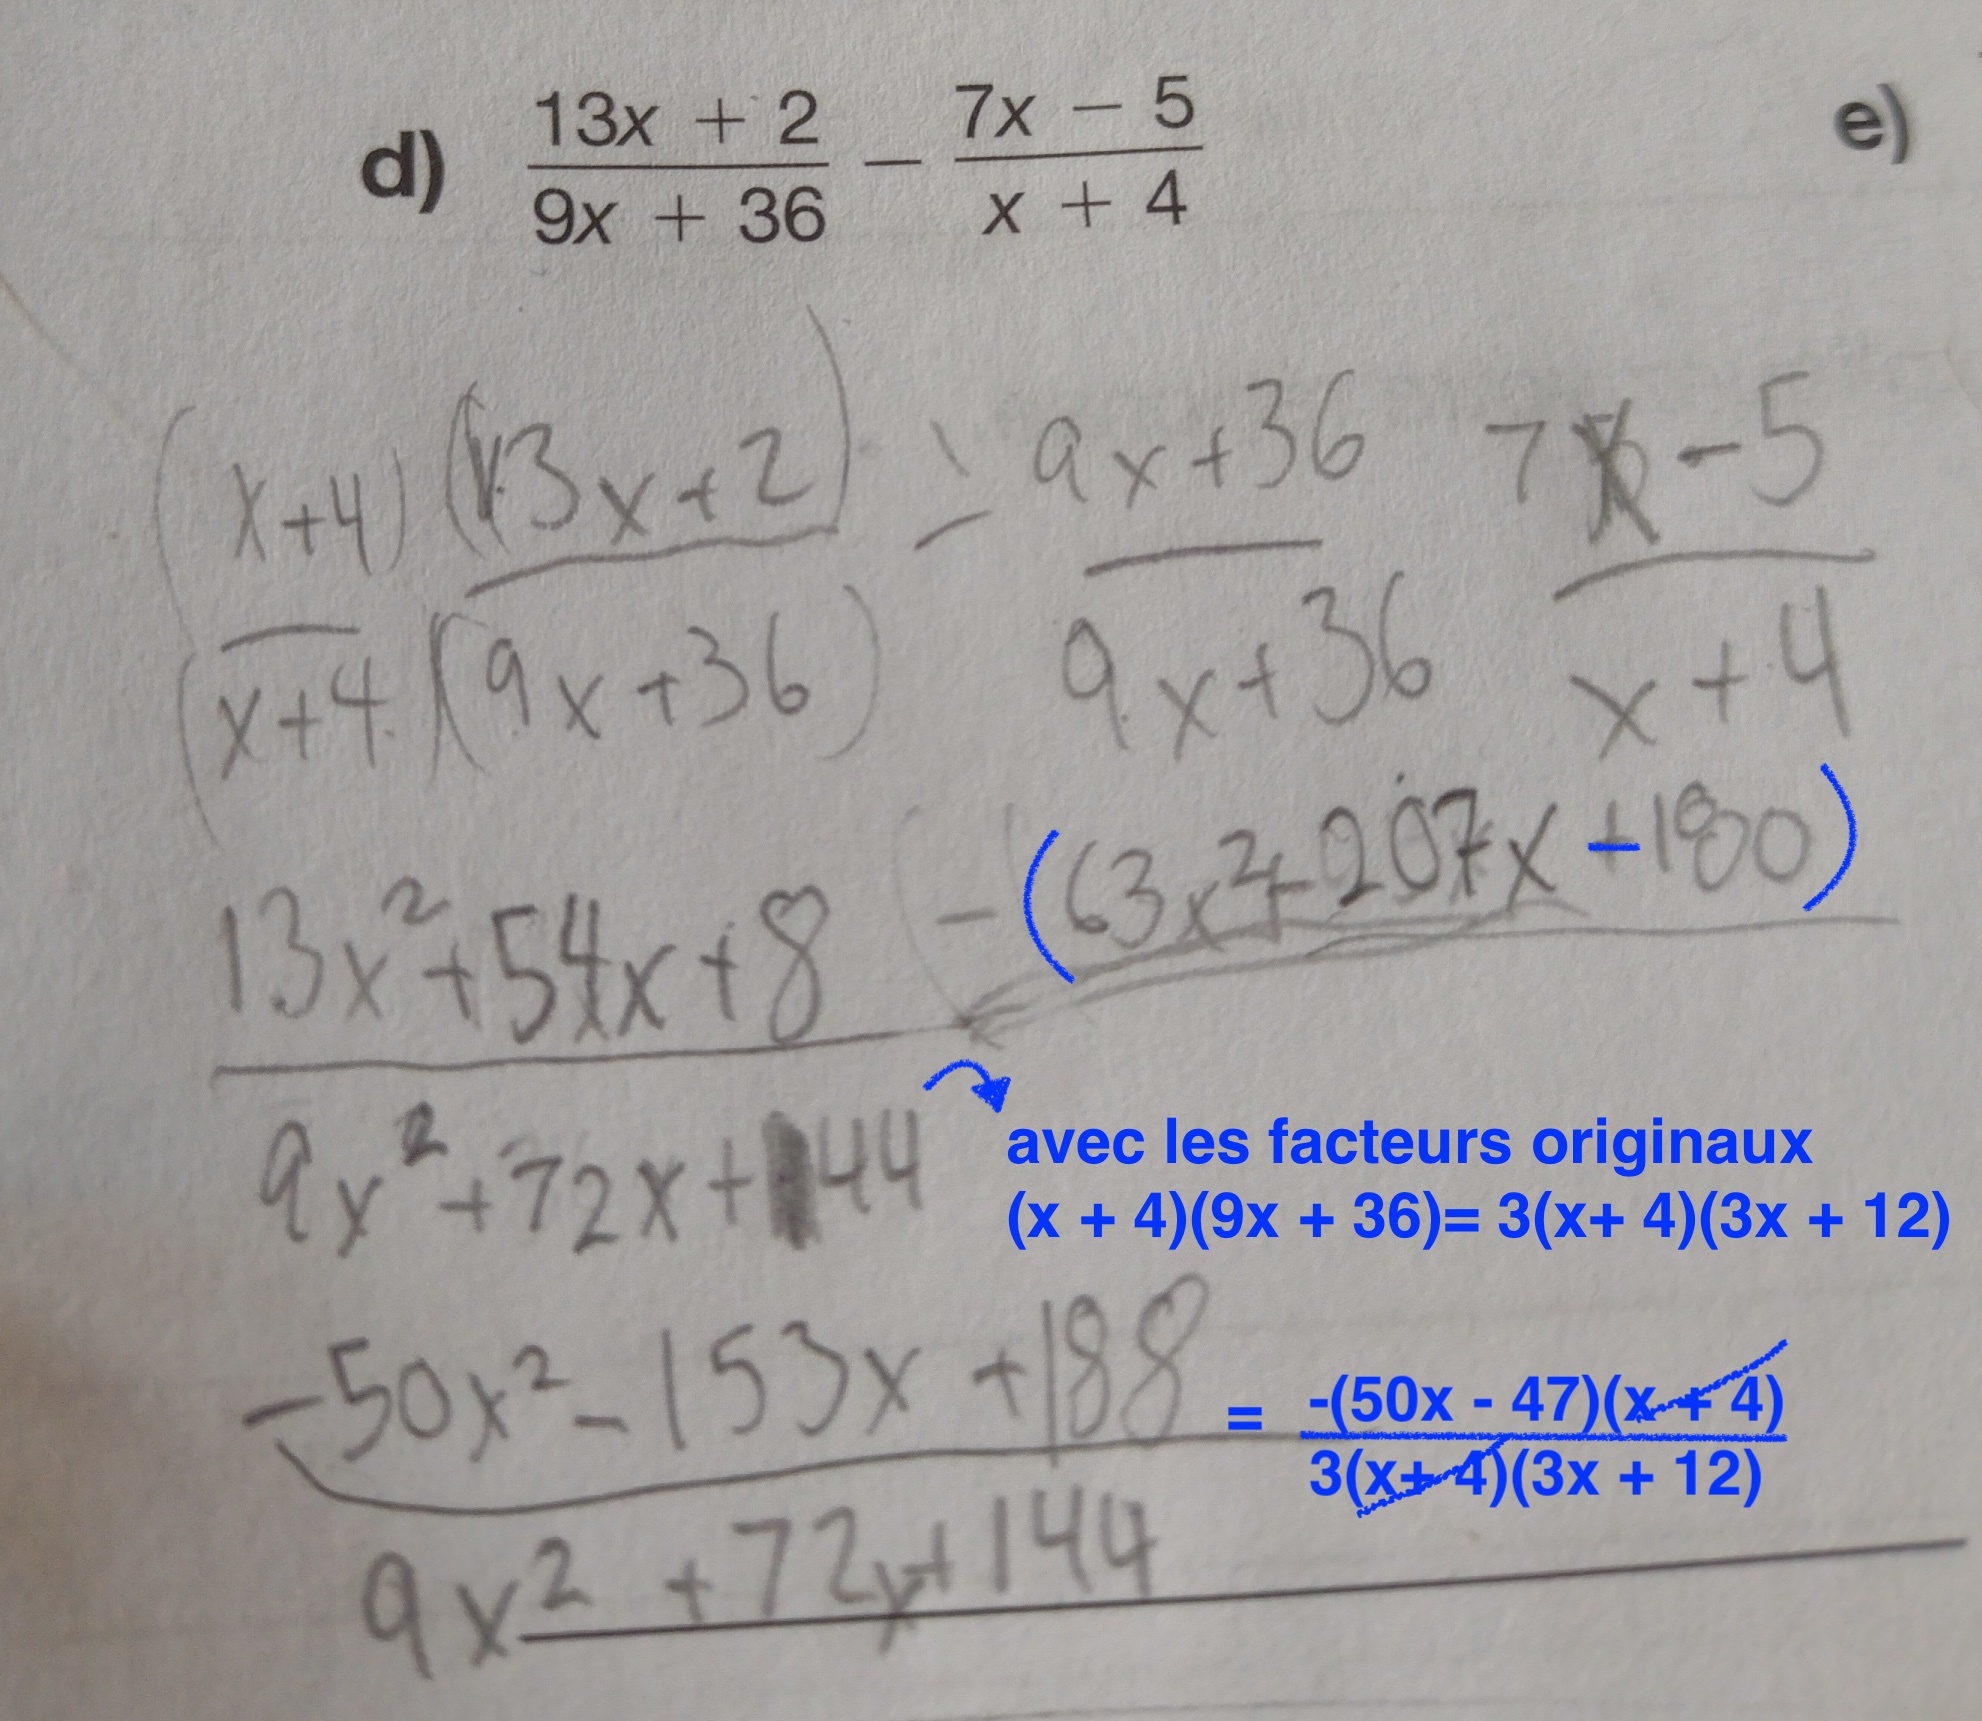 d) (13x + 2)/(9x + 36) − (7x − 5)/(x + 4)
e)
(x+4)/(x+4) (13x+2)/(9x+36) − (9x+36)/(9x+36) (7x−5)/(x+4)
13x²+54x+8 −(63x²+207x −180)
9x²+72x+144
avec les facteurs originaux
(x + 4)(9x + 36)= 3(x+ 4)(3x + 12)
−50x²−153x+188 = -(50x - 47)(x + 4)
9x²+72x+144 3(x+ 4)(3x + 12)